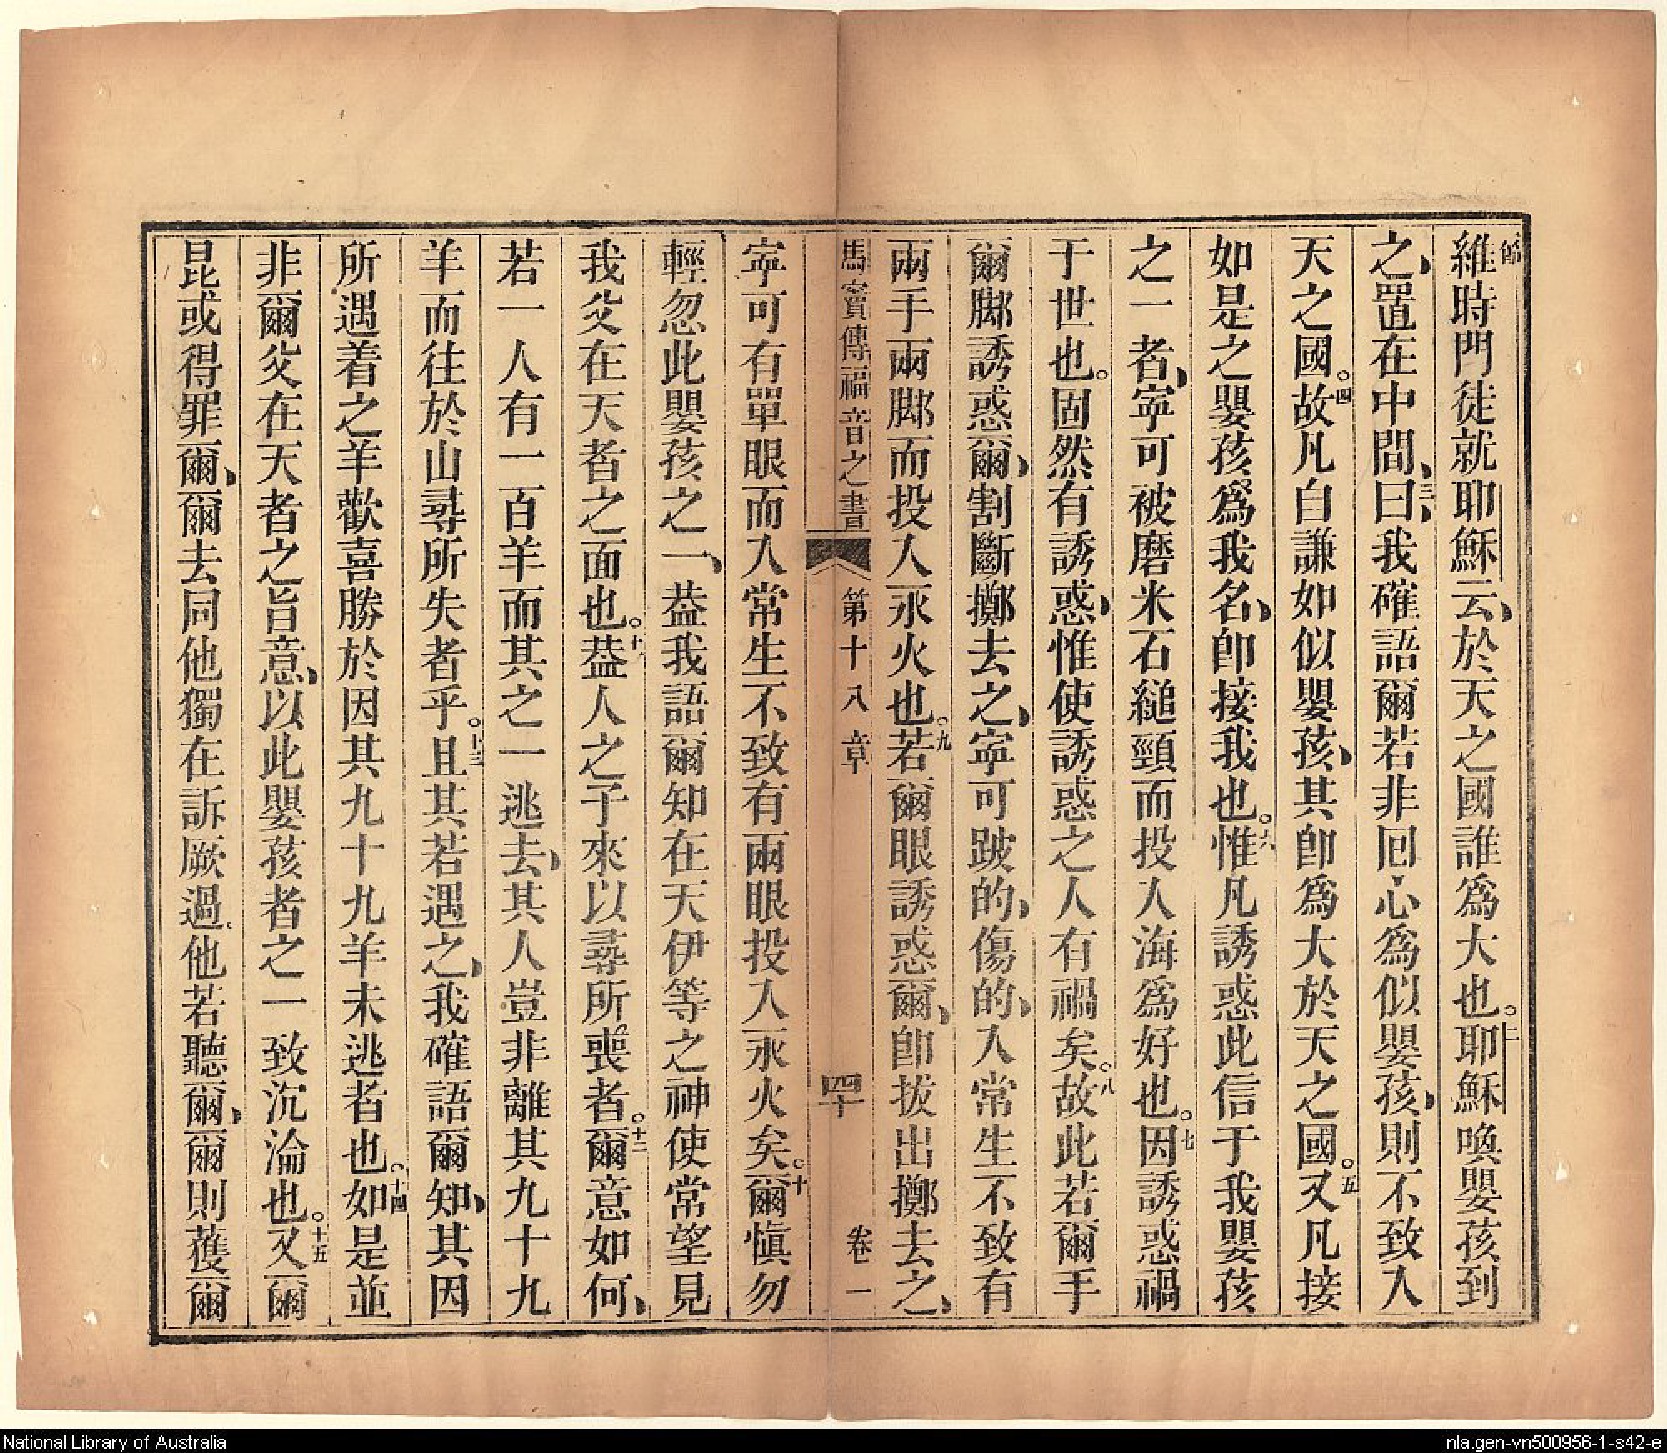 維時門徒就耶穌云、於天之國誰爲大也。二耶穌喚嬰孩到
之、置在中間、三曰、我確語爾若非回心爲似嬰孩、則不致入
天之國。四故凡自謙如似嬰孩、其卽爲大於天之國。五又凡接
如是之嬰孩爲我名、卽接我也。六惟凡誘惑此信于我嬰孩
之一者、寧可被磨米石縋頸而投入海爲好也。七因誘惑禍
于世也。固然有誘惑、惟使誘惑之人有禍矣。八故此若爾手
爾脚誘惑爾、割斷擲去之、寧可跛的、傷的、入常生不致有
兩手兩脚而投入永火也。九若爾眼誘惑爾、卽拔出擲去之、
馬竇傳福音之書 第十八章 四十 卷一
寧可有單眼而入常生不致有兩眼投入永火矣。十爾愼勿
輕忽此嬰孩之一、葢我語爾知在天伊等之神使常望見
我父在天者之面也。十一葢人之子來以尋所喪者。十二爾意如何、
若一人有一百羊而其之一逃去、其人豈非離其九十九
羊而往於山尋所失者乎。十三且其若遇之、我確語爾知、其因
所遇着之羊歡喜勝於因其九十九羊未逃者也。十四如是並
非爾父在天者之旨意、以此嬰孩者之一致沉淪也。十五又爾
昆或得罪爾、爾去同他獨在訴厥過、他若聽爾、爾則獲爾
National Library of Australia
nla.gen-vn500956-1-s42-e